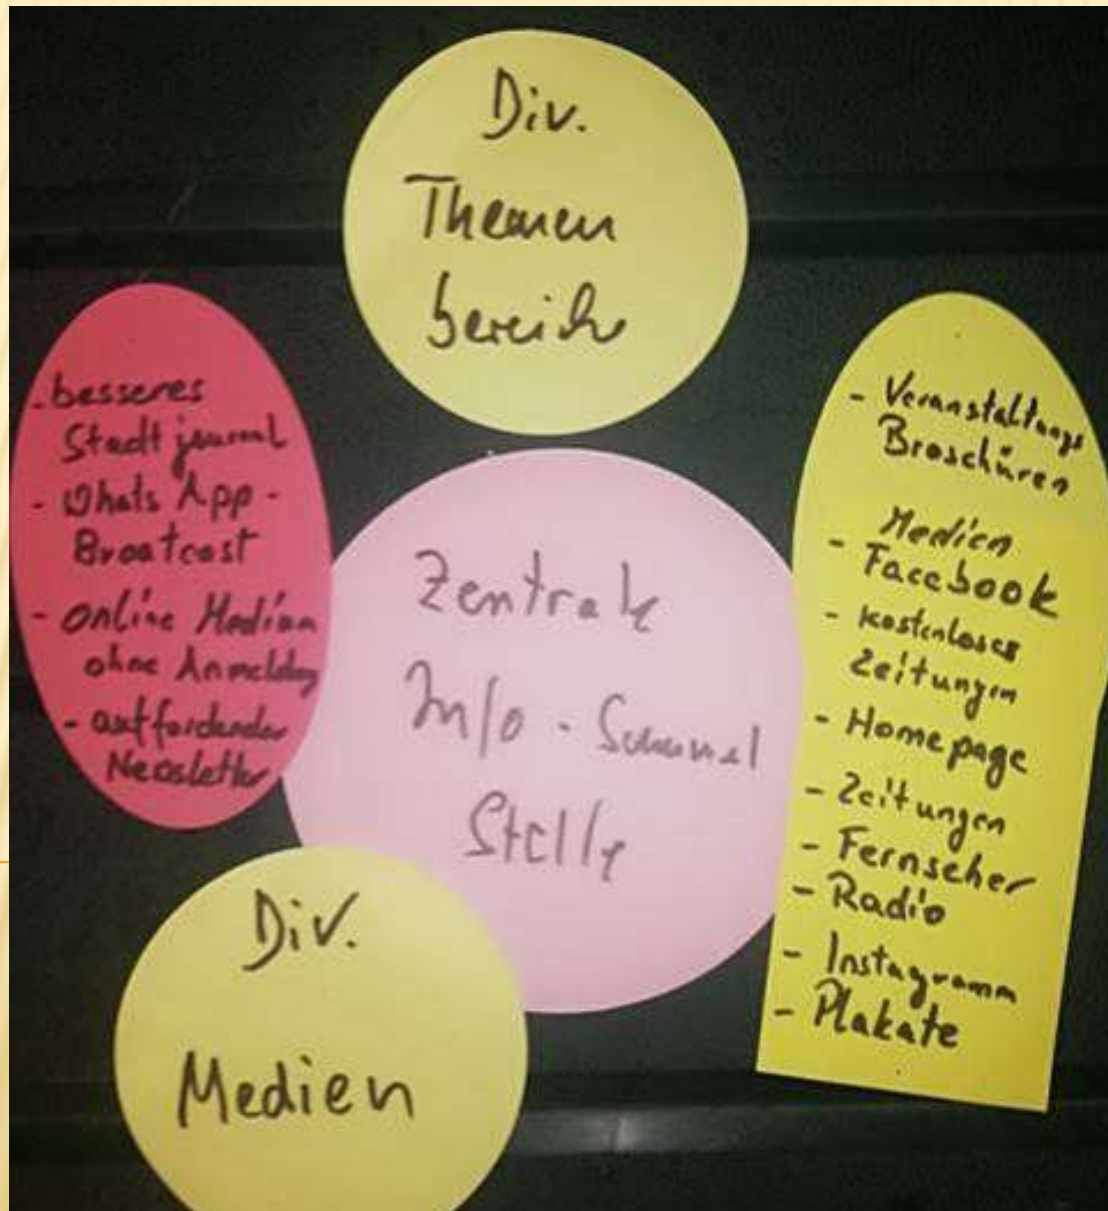 Div.
Themen
bereiche
- besseres
Stadtjournal
- Whats App -
Broatcast
- online Medien
ohne Anmeldung
- auffordender
Newsletter
Zentrale
Info - Sammel
Stelle
- Veranstaltungs
Broschüren
Medien
- Facebook
- kostenloses
Zeitungen
- Homepage
- Zeitungen
- Fernseher
- Radio
- Instagramm
- Plakate
Div.
Medien